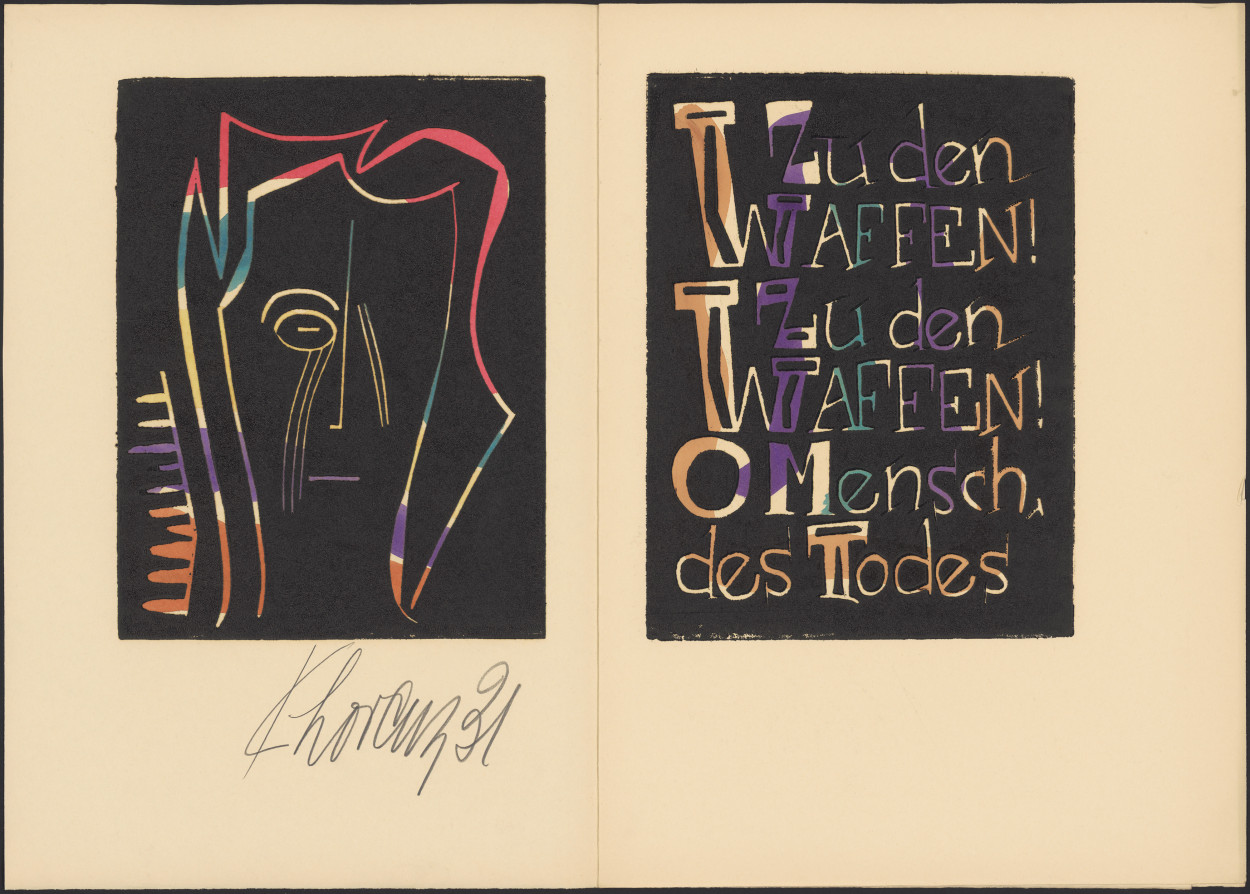 KLorenz 91
Zu den
WAFFEN!
Zu den
WAFFEN!
O Mensch,
des Todes